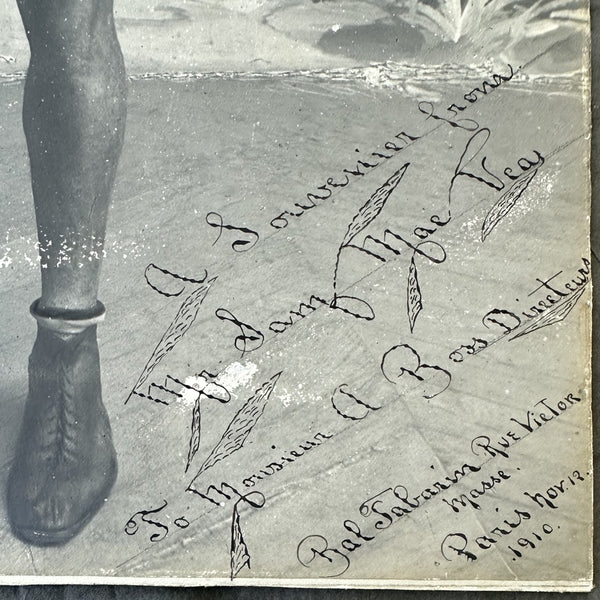 A Souvenier from
Mr Sam Mac Vea
To Monsieur A Boss Directeurs
Bal Tabarin Rue Victor
Masse.
Paris Nov. 12.
1910.